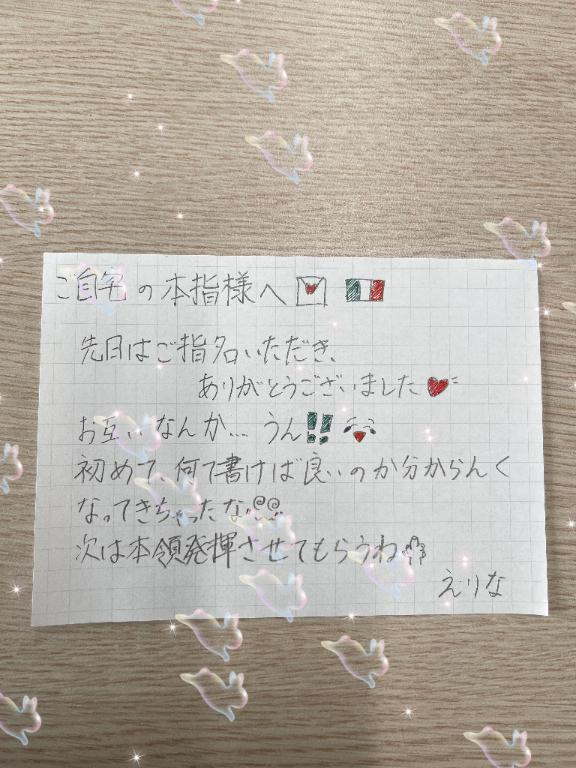 ご自宅の本指様へ
先日はご指名いただき、
ありがとうございました
お互いなんか... うん!!
初めて、何て書けば良いのか分からんく
なってきちゃったな
次は本領発揮させてもらうね
えりな